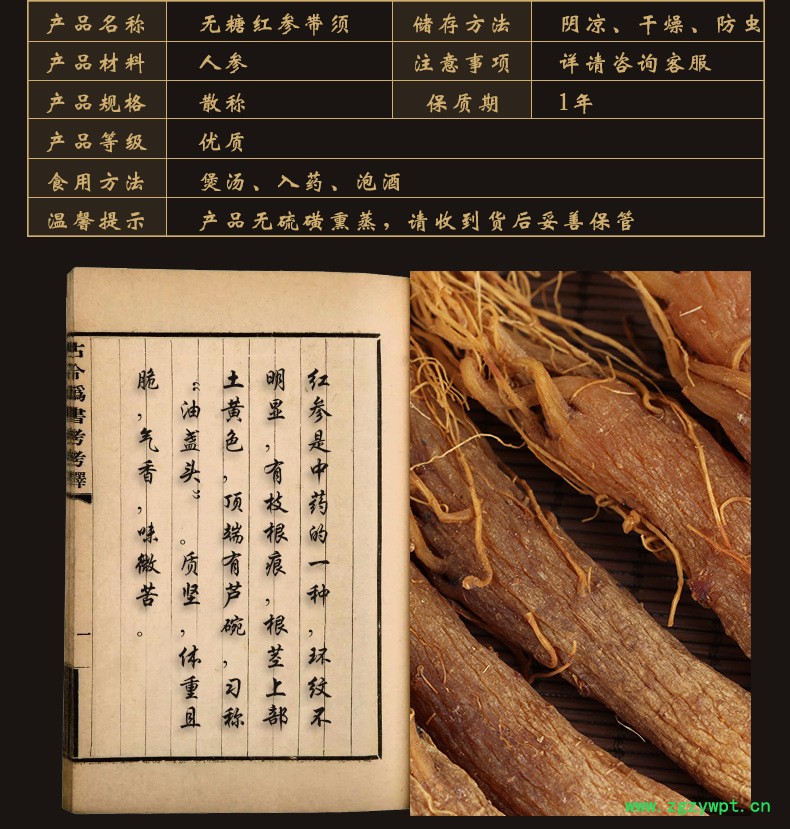 产品名称 无糖红参带须 储存方法 阴凉、干燥、防虫
产品材料 人参 注意事项 详请咨询客服
产品规格 散称 保质期 1年
产品等级 优质
食用方法 煲汤、入药、泡酒
温馨提示 产品无硫磺熏蒸，请收到货后妥善保管
红参是中药的一种，环纹不
明显，有枝根痕，根茎上部
土黄色，顶端有芦碗，习称
“油盏头”。质坚，体重且
脆，气香，味微苦。
古今爲書考考釋
一
www.zgzywpt.cn